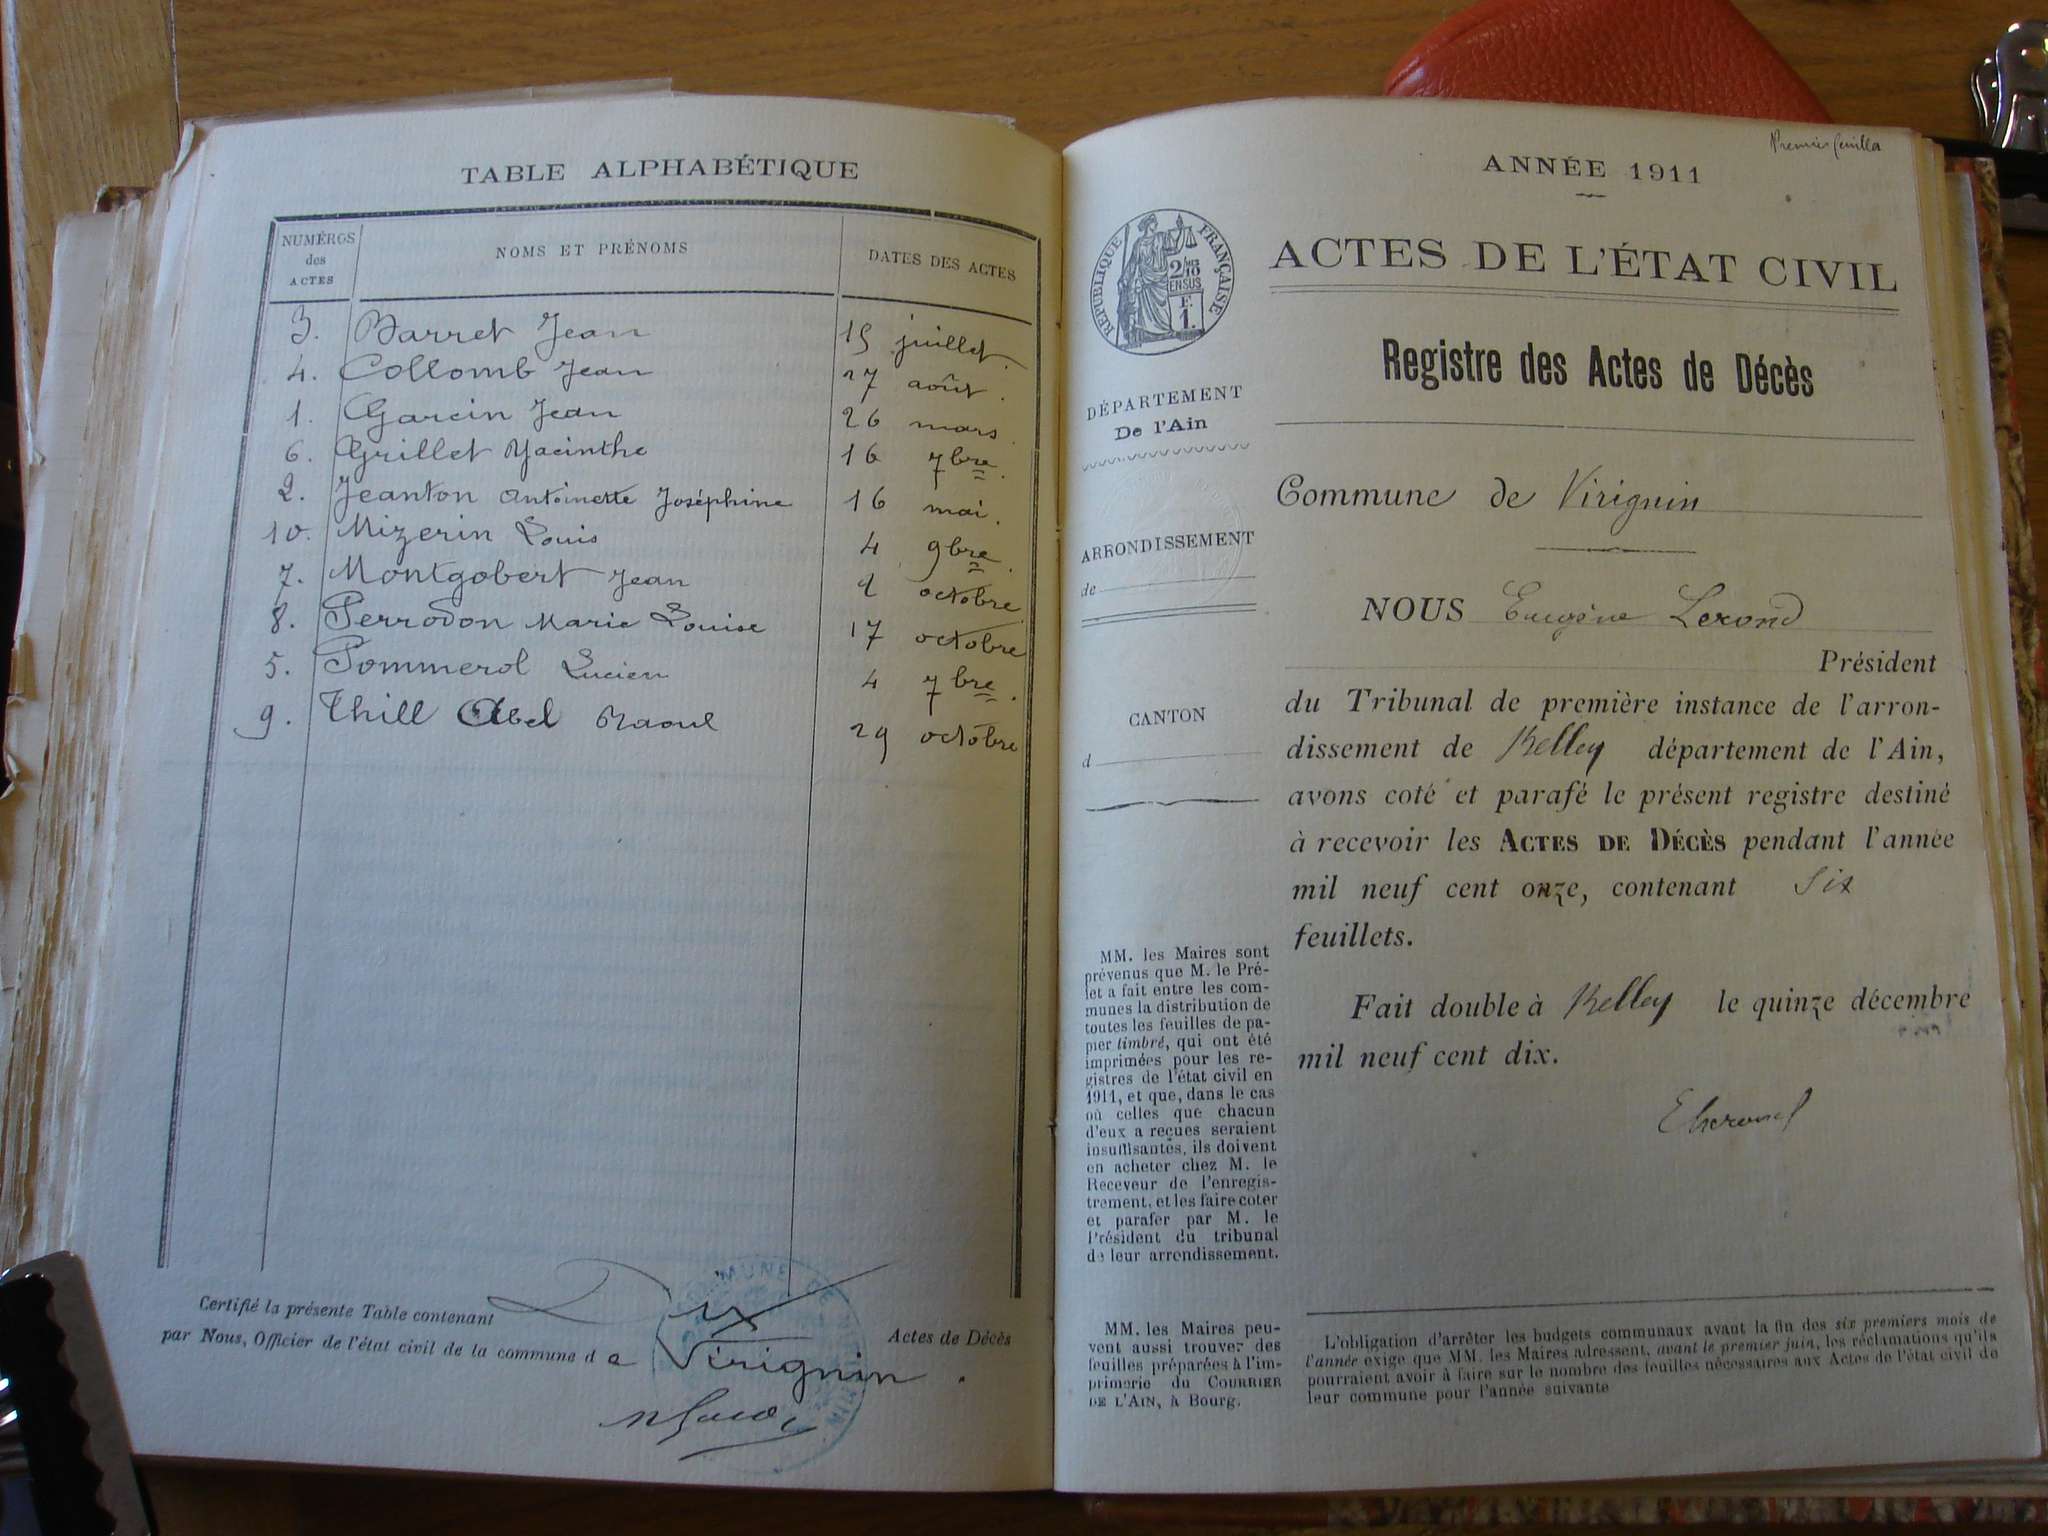 TABLE ALPHABÉTIQUE
NUMÉROS
des
ACTES
NOMS ET PRÉNOMS
DATES DES ACTES
3. Barret Jean 15 juillet.
4. Collomb Jean 27 août.
1. Garcin Jean 26 mars.
6. Grillet Hyacinthe 16 7bre.
2. Jeanton Antoinette Joséphine 16 mai.
10. Mizerin Louis 4 9bre.
7. Montgobert Jean 2 octobre
8. Perrodon Marie Louise 17 octobre
5. Pommerol Lucien 4 7bre.
9. Thill Abel Raoul 29 octobre
Certifié la présente Table contenant Dix Actes de Décès
par Nous, Officier de l'état civil de la commune de Virignin.
Premier feuillet
ANNÉE 1911
RÉPUBLIQUE FRANÇAISE
2/10
EN SUS
F.
1.
ACTES DE L'ÉTAT CIVIL
Registre des Actes de Décès
DÉPARTEMENT
De l'Ain
Commune de Virignin
ARRONDISSEMENT
de
NOUS Eugène Lerond
Président
CANTON
d
du Tribunal de première instance de l'arron-
dissement de Belley département de l'Ain,
avons coté et parafé le présent registre destiné
à recevoir les ACTES DE DÉCÈS pendant l'année
mil neuf cent onze, contenant six
feuillets.
Fait double à Belley le quinze décembre
mil neuf cent dix.
MM. les Maires sont
prévenus que M. le Pré-
fet a fait entre les com-
munes la distribution de
toutes les feuilles de pa-
pier timbré, qui ont été
imprimées pour les re-
gistres de l'état civil en
1911, et que, dans le cas
où celles que chacun
d'eux a reçues seraient
insuffisantes, ils doivent
en acheter chez M. le
Receveur de l'enregis-
trement, et les faire coter
et parafer par M. le
Président du tribunal
de leur arrondissement.
MM. les Maires peu-
vent aussi trouver des
feuilles préparées à l'im-
primerie du COURRIER
DE L'AIN, à Bourg.
L'obligation d'arrêter les budgets communaux avant la fin des six premiers mois de
l'année exige que MM. les Maires adressent, avant le premier juin, les réclamations qu'ils
pourraient avoir à faire sur le nombre des feuilles nécessaires aux Actes de l'état civil de
leur commune pour l'année suivante